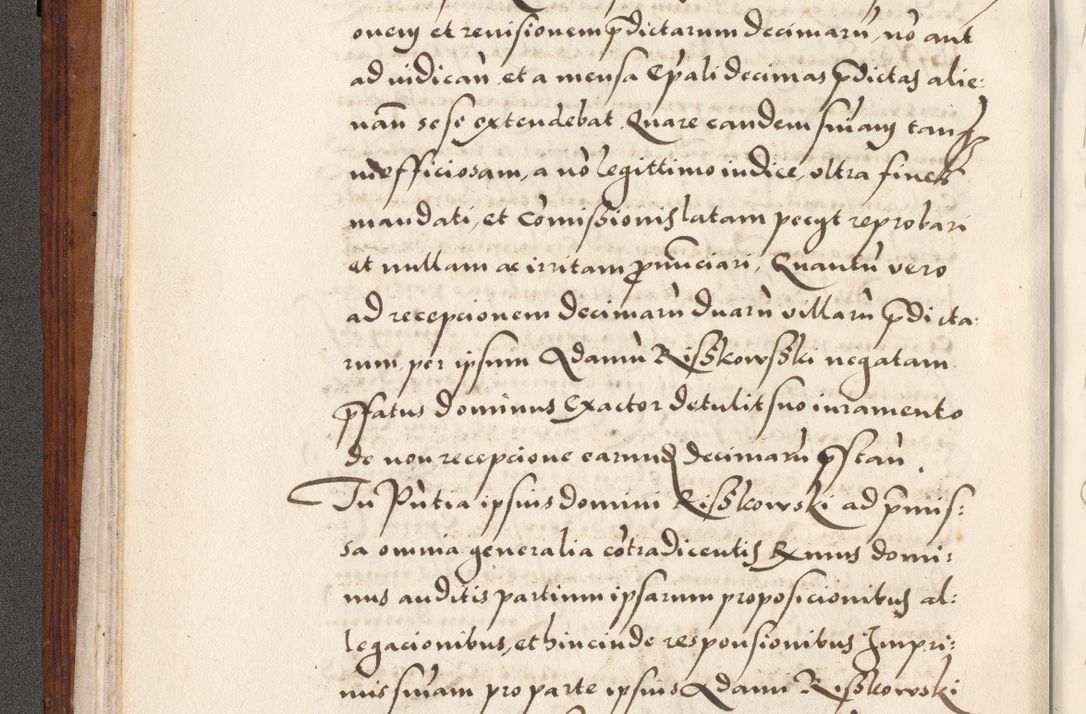 onem et reuisionem p̄dictarum decimarū, nō aūt
adiudicań et a mensa Ep̄ali decimas p̄dictas alie:
nań sese extendebat. Quare eandem sn̄iam tanq̄
inofficiosam, a nō legittimo iudice, vltra fines
mandati, et Com̄issionis latam peciit reprobari
et nullam ac irritam pronūciari, Quantū vero
ad recepcionem decimarū duarū villarū p̄dicta:
rum, per ipsum Adamū Risskowsski negatam
p̄fatus dominus Exactor detulit suo iuramento
de non recepcione earund decimarū p̄stań.
In Pn̄tia ipsius domini Risskowski ad p̄mis:
sa omnia generalia cōtradicentis R̄mus domi:
nus auditis partium ipsarum proposicionibus al:
legacionibus, et hincinde responsionibus Impri:
mis sn̄iam pro parte ipsius Adami Risskowski